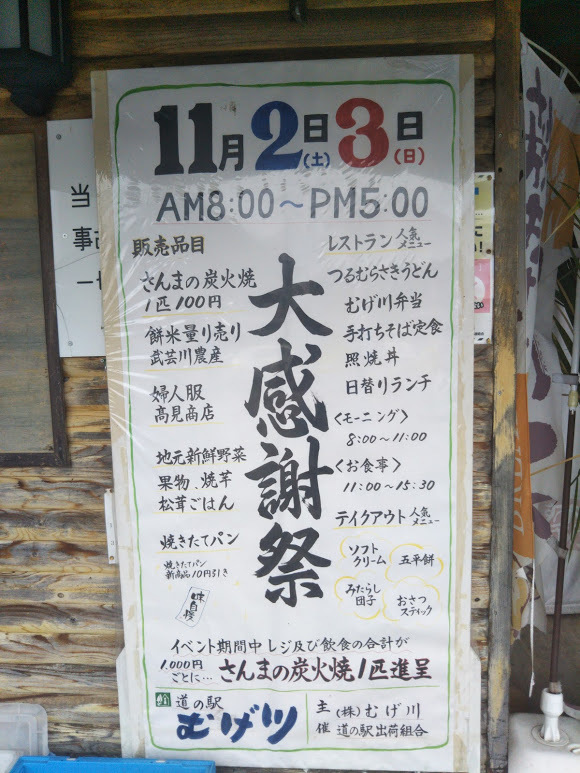 11月2日(土)3日(日)
AM8:00〜PM5:00
販売品目
さんまの炭火焼
1匹100円
餅米量り売り
武芸川農産
婦人服
高見商店
地元新鮮野菜
果物 焼芋
松茸ごはん
焼きたてパン
焼きたてパン
新商品10円引き
味自慢
大感謝祭
レストラン人気メニュー
つるむらさきうどん
むげ川弁当
手打ちそば定食
照焼丼
日替りランチ
<モーニング>
8:00〜11:00
<お食事>
11:00〜15:30
テイクアウト人気メニュー
ソフト
クリーム
五平餅
みたらし
団子
おさつ
スティック
イベント期間中レジ及び飲食の合計が
1,000円
ごとに…さんまの炭火焼1匹進呈
道の駅
むげ川
主催
(株)むげ川
道の駅出荷組合
当
事